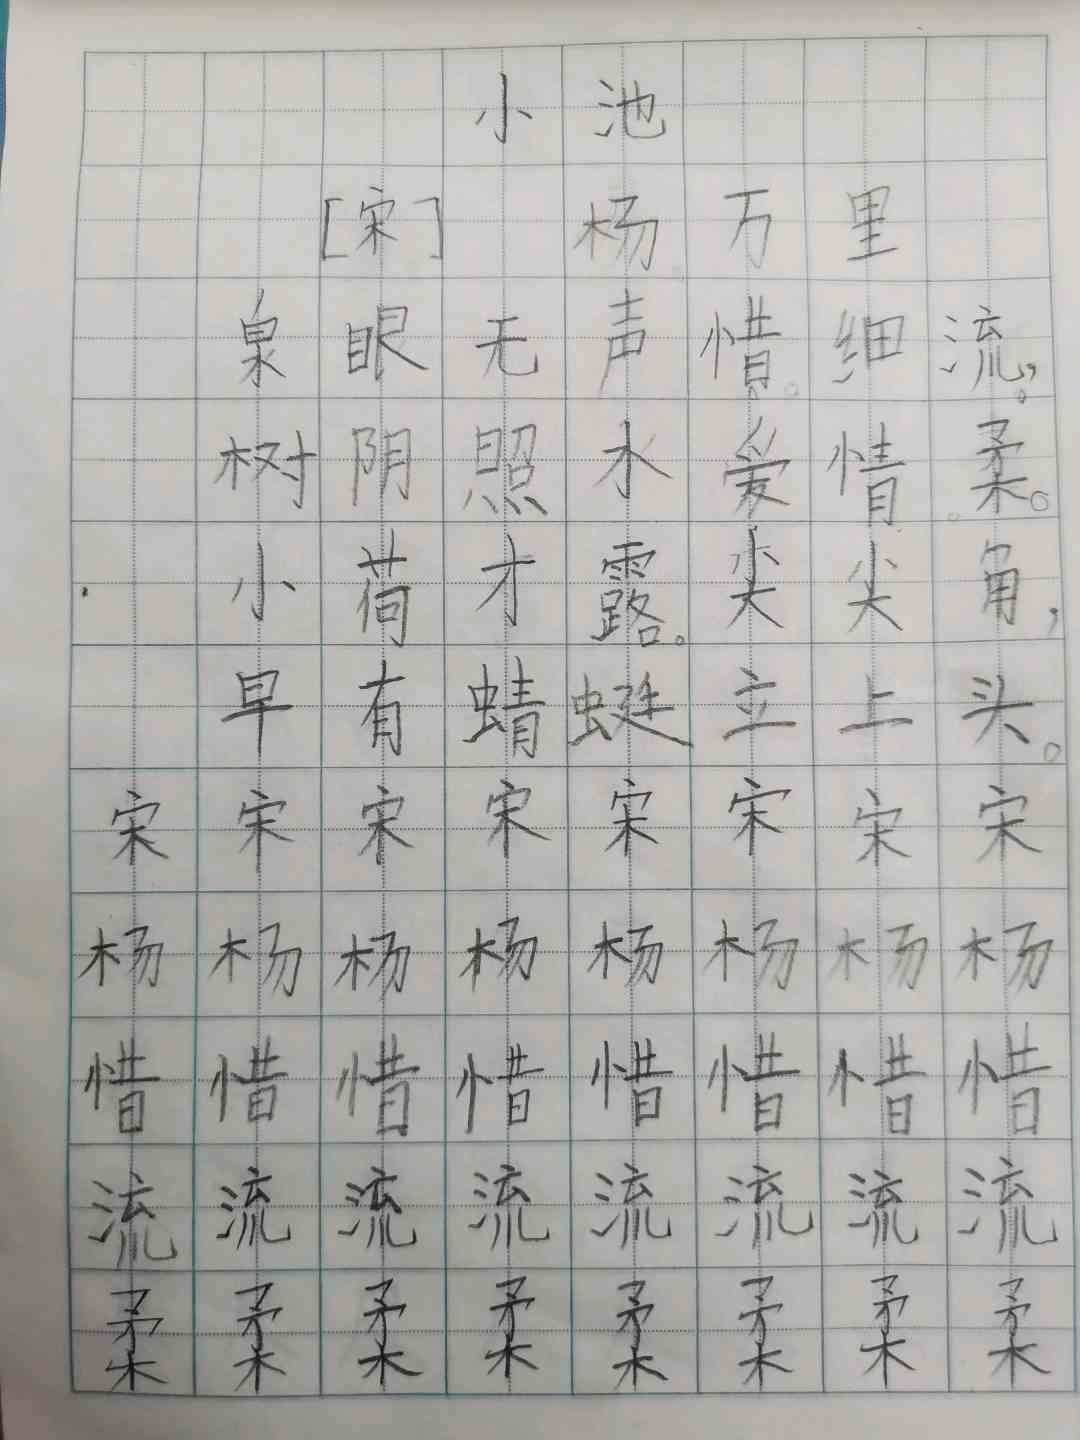 小池
[宋] 杨万里
泉眼无声惜细流,。
树阴照水爱情柔。
小荷才露。尖尖角,
早有蜻蜓立上头。
宋宋宋宋宋宋宋宋
杨杨杨杨杨杨杨杨
惜惜惜惜惜惜惜惜
流流流流流流流流
柔柔柔柔柔柔柔柔